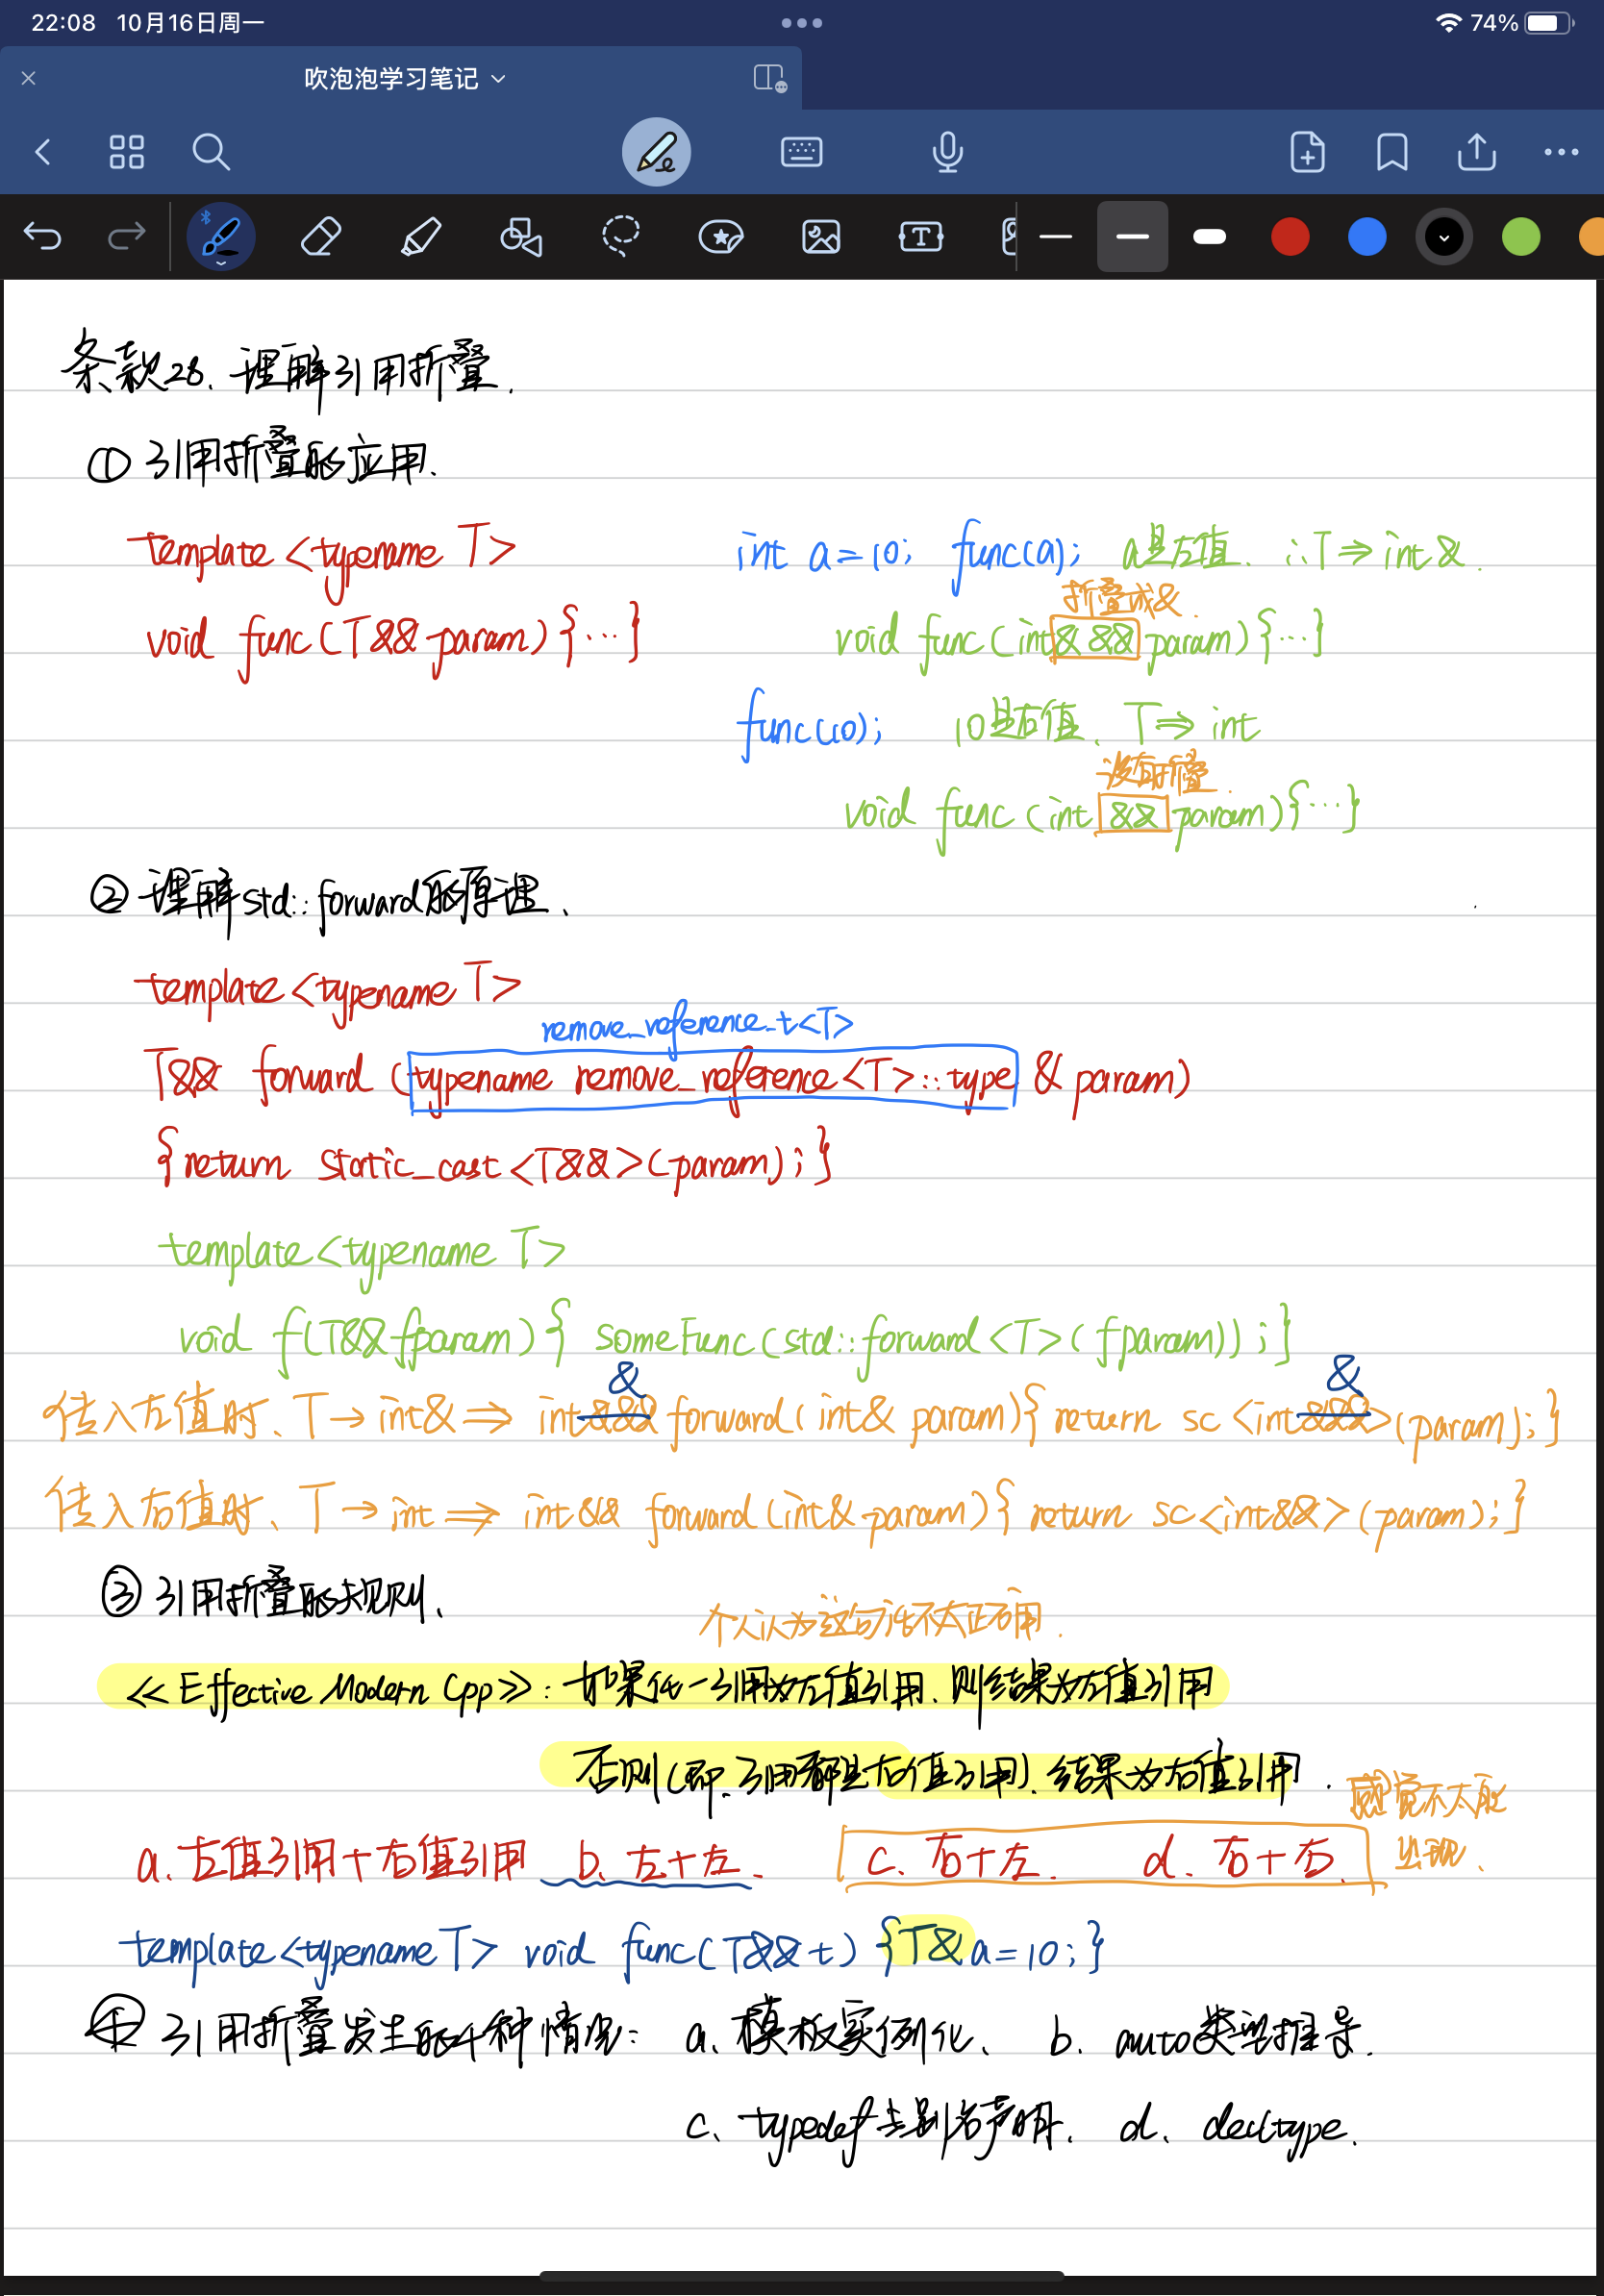 22:08 10月16日周一
74%
吹泡泡学习笔记
条款28、理解引用折叠.
① 引用折叠的应用、
template <typename T>
int a = 10; func(a); a是左值、∴T ⇒ int &.
折叠成&.
void func (T && param) {…}
void func (int& && param) {…}
func(10); 10是右值、T ⇒ int
没有折叠.
void func (int && param) {…}
② 理解std::forward的原理、
template <typename T>
remove_reference_t<T>
T&& forward (typename remove_reference<T>::type & param)
{return static_cast<T&&>(param);}
template <typename T>
void f(T&& fparam) { someFunc(std::forward<T>(fparam)); }
& &
传入左值时、T → int& ⇒ int&&& forward(int& param){ return sc<int&&&>(param); }
传入右值时、T → int ⇒ int&& forward(int& param){ return sc<int&&>(param); }
③ 引用折叠的规则、
个人认为这句话不太正确.
《Effective Modern Cpp》: 如果任一引用为左值引用、则结果为左值引用
否则(即、引用都是右值引用)、结果为右值引用.
感觉不太能
出现、
a、左值引用+右值引用 b、左+左、 c、右+左. d、右+右、
template<typename T> void func(T&& t) {T& a = 10;}
④ 引用折叠发生的4种情况: a、模板实例化、 b. auto类型推导.
c、typedef与别名声明. d、decltype.